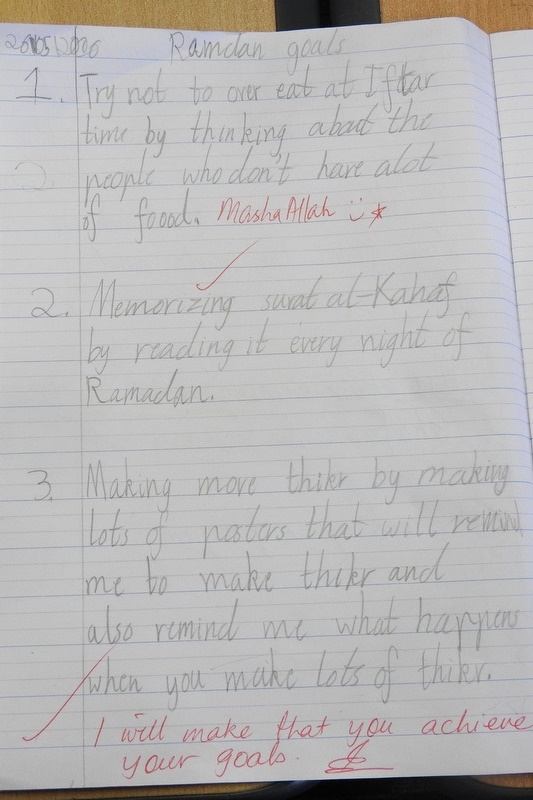 Ramdan goals
1. Try not to over eat at Iftar
time by thinking about the
people who don't have alot
of foood. Masha Allah
2. Memorizing surat al-Kahaf
by reading it every night of
Ramadan.
3. Making more thikr by making
lots of postors that will remind
me to make thikr and
also remind me what happens
when you make lots of thikr.
I will make that you achieve
your goals.